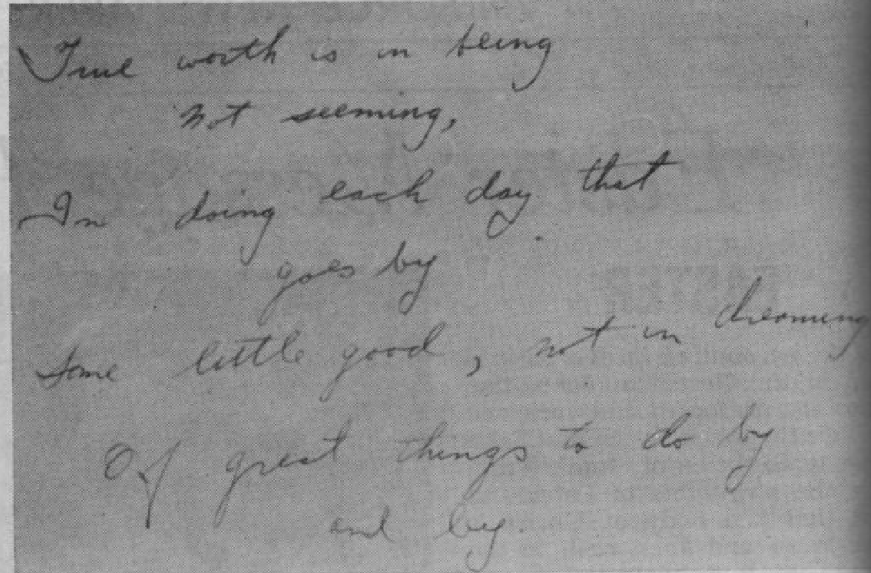 True worth is in being
not seeming,
In doing each day that
goes by
Some little good, not in dreaming
Of great things to do by
and by.